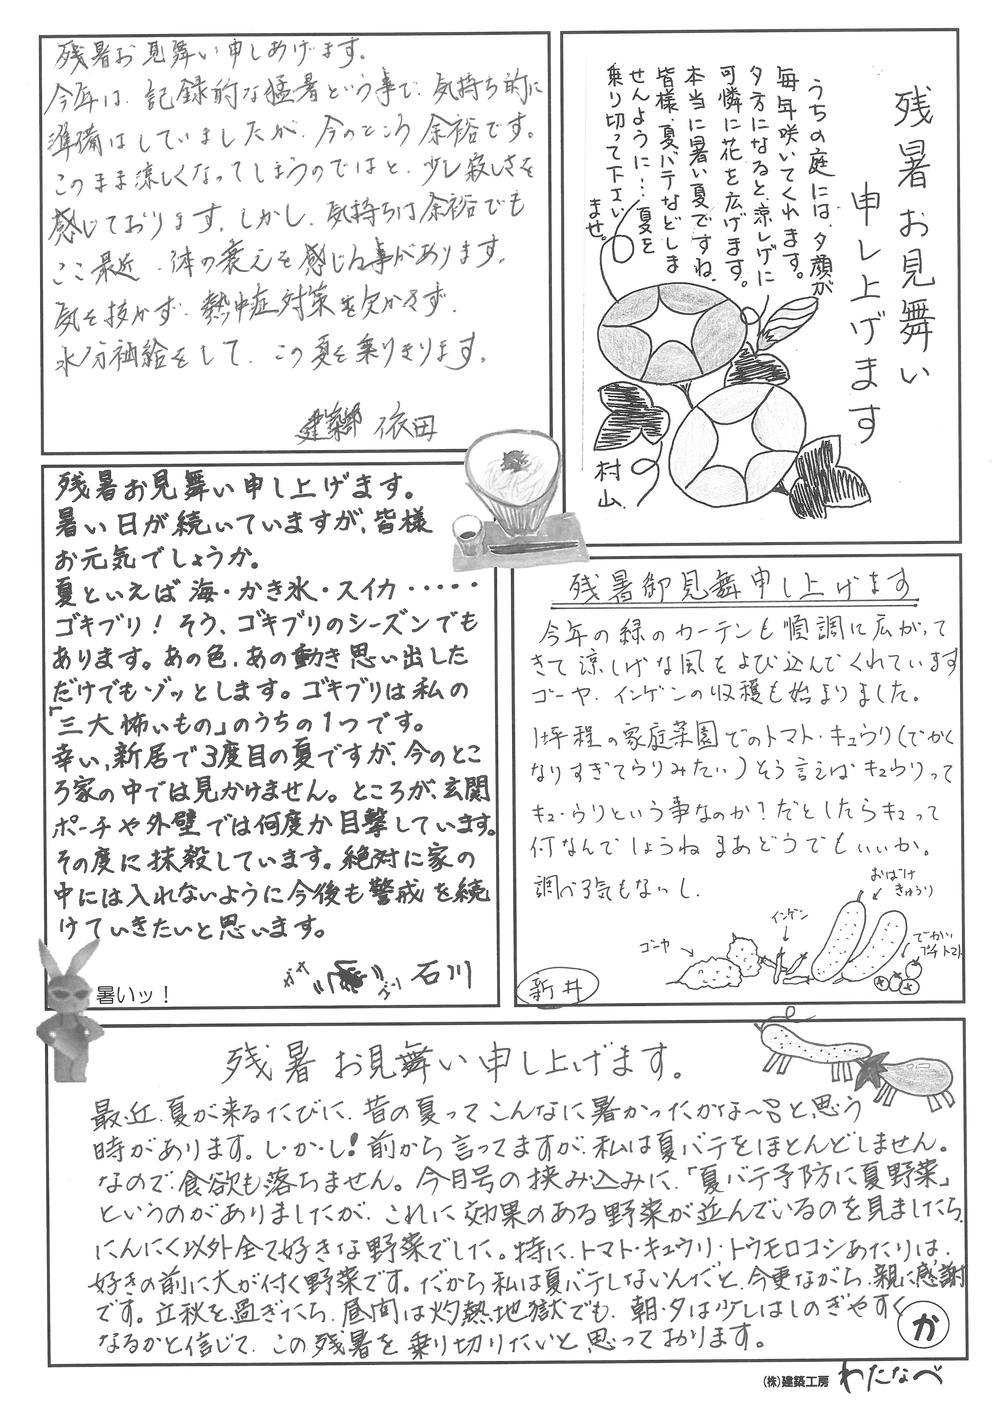 残暑お見舞い申しあげます。
今年は、記録的な猛暑という事で、気持ち的に
準備はしていましたが、今のところ余裕です。
このまま涼しくなってしまうのではと、少し寂しさを
感じております。しかし、気持ちは余裕でも
ここ最近、体の衰えを感じる事があります。
気を抜かず、熱中症対策を欠かさず、
水分補給をして、この夏を乗りきります。
建築部 依田
残暑お見舞い
申し上げます
うちの庭には、夕顔が
毎年咲いてくれます。
夕方になると、涼しげに
可憐に花を広げます。
本当に暑い夏ですね、
皆様、夏バテなどしま
せんように…夏を
乗り切って下さい
ませ。
村山
残暑お見舞い申し上げます。
暑い日が続いていますが、皆様
お元気でしょうか。
夏といえば 海・かき氷・スイカ・・・・・
ゴキブリ！そう、ゴキブリのシーズンでも
あります。あの色、あの動き思い出した
だけでもゾッとします。ゴキブリは私の
「三大怖いもの」のうちの1つです。
幸い、新居で3度目の夏ですが、今のとこ
ろ家の中では見かけません。ところが、玄関
ポーチや外壁では何度か目撃しています。
その度に抹殺しています。絶対に家の
中には入れないように今後も警戒を続
けていきたいと思います。
ガサ ゴソ 石川
暑いッ！
残暑御見舞申し上げます
今年の緑のカーテンも順調に広がって
きて涼しげな風をよび込んでくれています
ゴーヤ、インゲンの収穫も始まりました。
1坪程の家庭菜園でのトマト・キュウリ(でかく
なりすぎてウリみたい)そう言えばキュウリって
キュ・ウリという事なのか？だとしたらキュって
何なんでしょうね まあどうでもいいか。
調べる気もないし、
おばけ
きゅうり
インゲン
ゴーヤ
でかい
プチトマト
新井
残暑お見舞い申し上げます。
最近、夏が来るたびに、昔の夏ってこんなに暑かったかな～？と思う
時があります。し・か・し！前から言ってますが、私は夏バテをほとんどしません。
なので、食欲も落ちません。今月号の挟み込みに、「夏バテ予防に夏野菜」
というのがありましたが、これに効果のある野菜が並んでいるのを見ましたら、
にんにく以外全て好きな野菜でした。特に、トマト・キュウリ・トウモロコシあたりは、
好きの前に大が付く野菜です。だから私は夏バテしないんだと、今更ながら、親に感謝
です。立秋を過ぎたら、昼間は灼熱地獄でも、朝・夕は少しはしのぎやすく
なるかと信じて、この残暑を乗り切りたいと思っております。
か
(株)建築工房 わたなべ